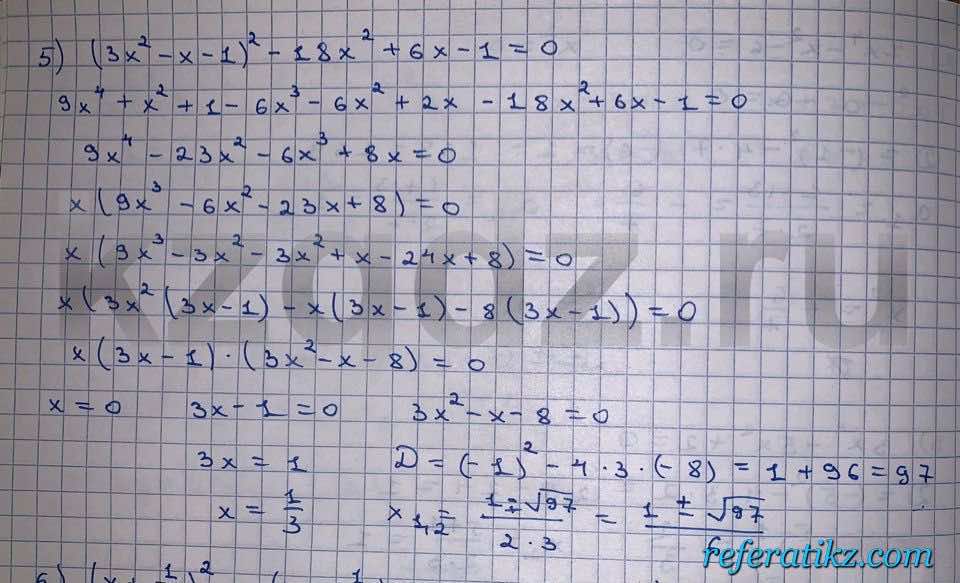 5) (3x² - x - 1)² - 18x² + 6x - 1 = 0
9x⁴ + x² + 1 - 6x³ - 6x² + 2x - 18x² + 6x - 1 = 0
9x⁴ - 23x² - 6x³ + 8x = 0
x(9x³ - 6x² - 23x + 8) = 0
x(9x³ - 3x² - 3x² + x - 24x + 8) = 0
x(3x²(3x - 1) - x(3x - 1) - 8(3x - 1)) = 0
x(3x - 1) · (3x² - x - 8) = 0
x = 0 3x - 1 = 0 3x² - x - 8 = 0
3x = 1 D = (-1)² - 4 · 3 · (-8) = 1 + 96 = 97
x = 1/3 x₁,₂ = (1 ± √97)/(2 · 3) = (1 ± √97)/6
kzgdz.ru
referatikz.com